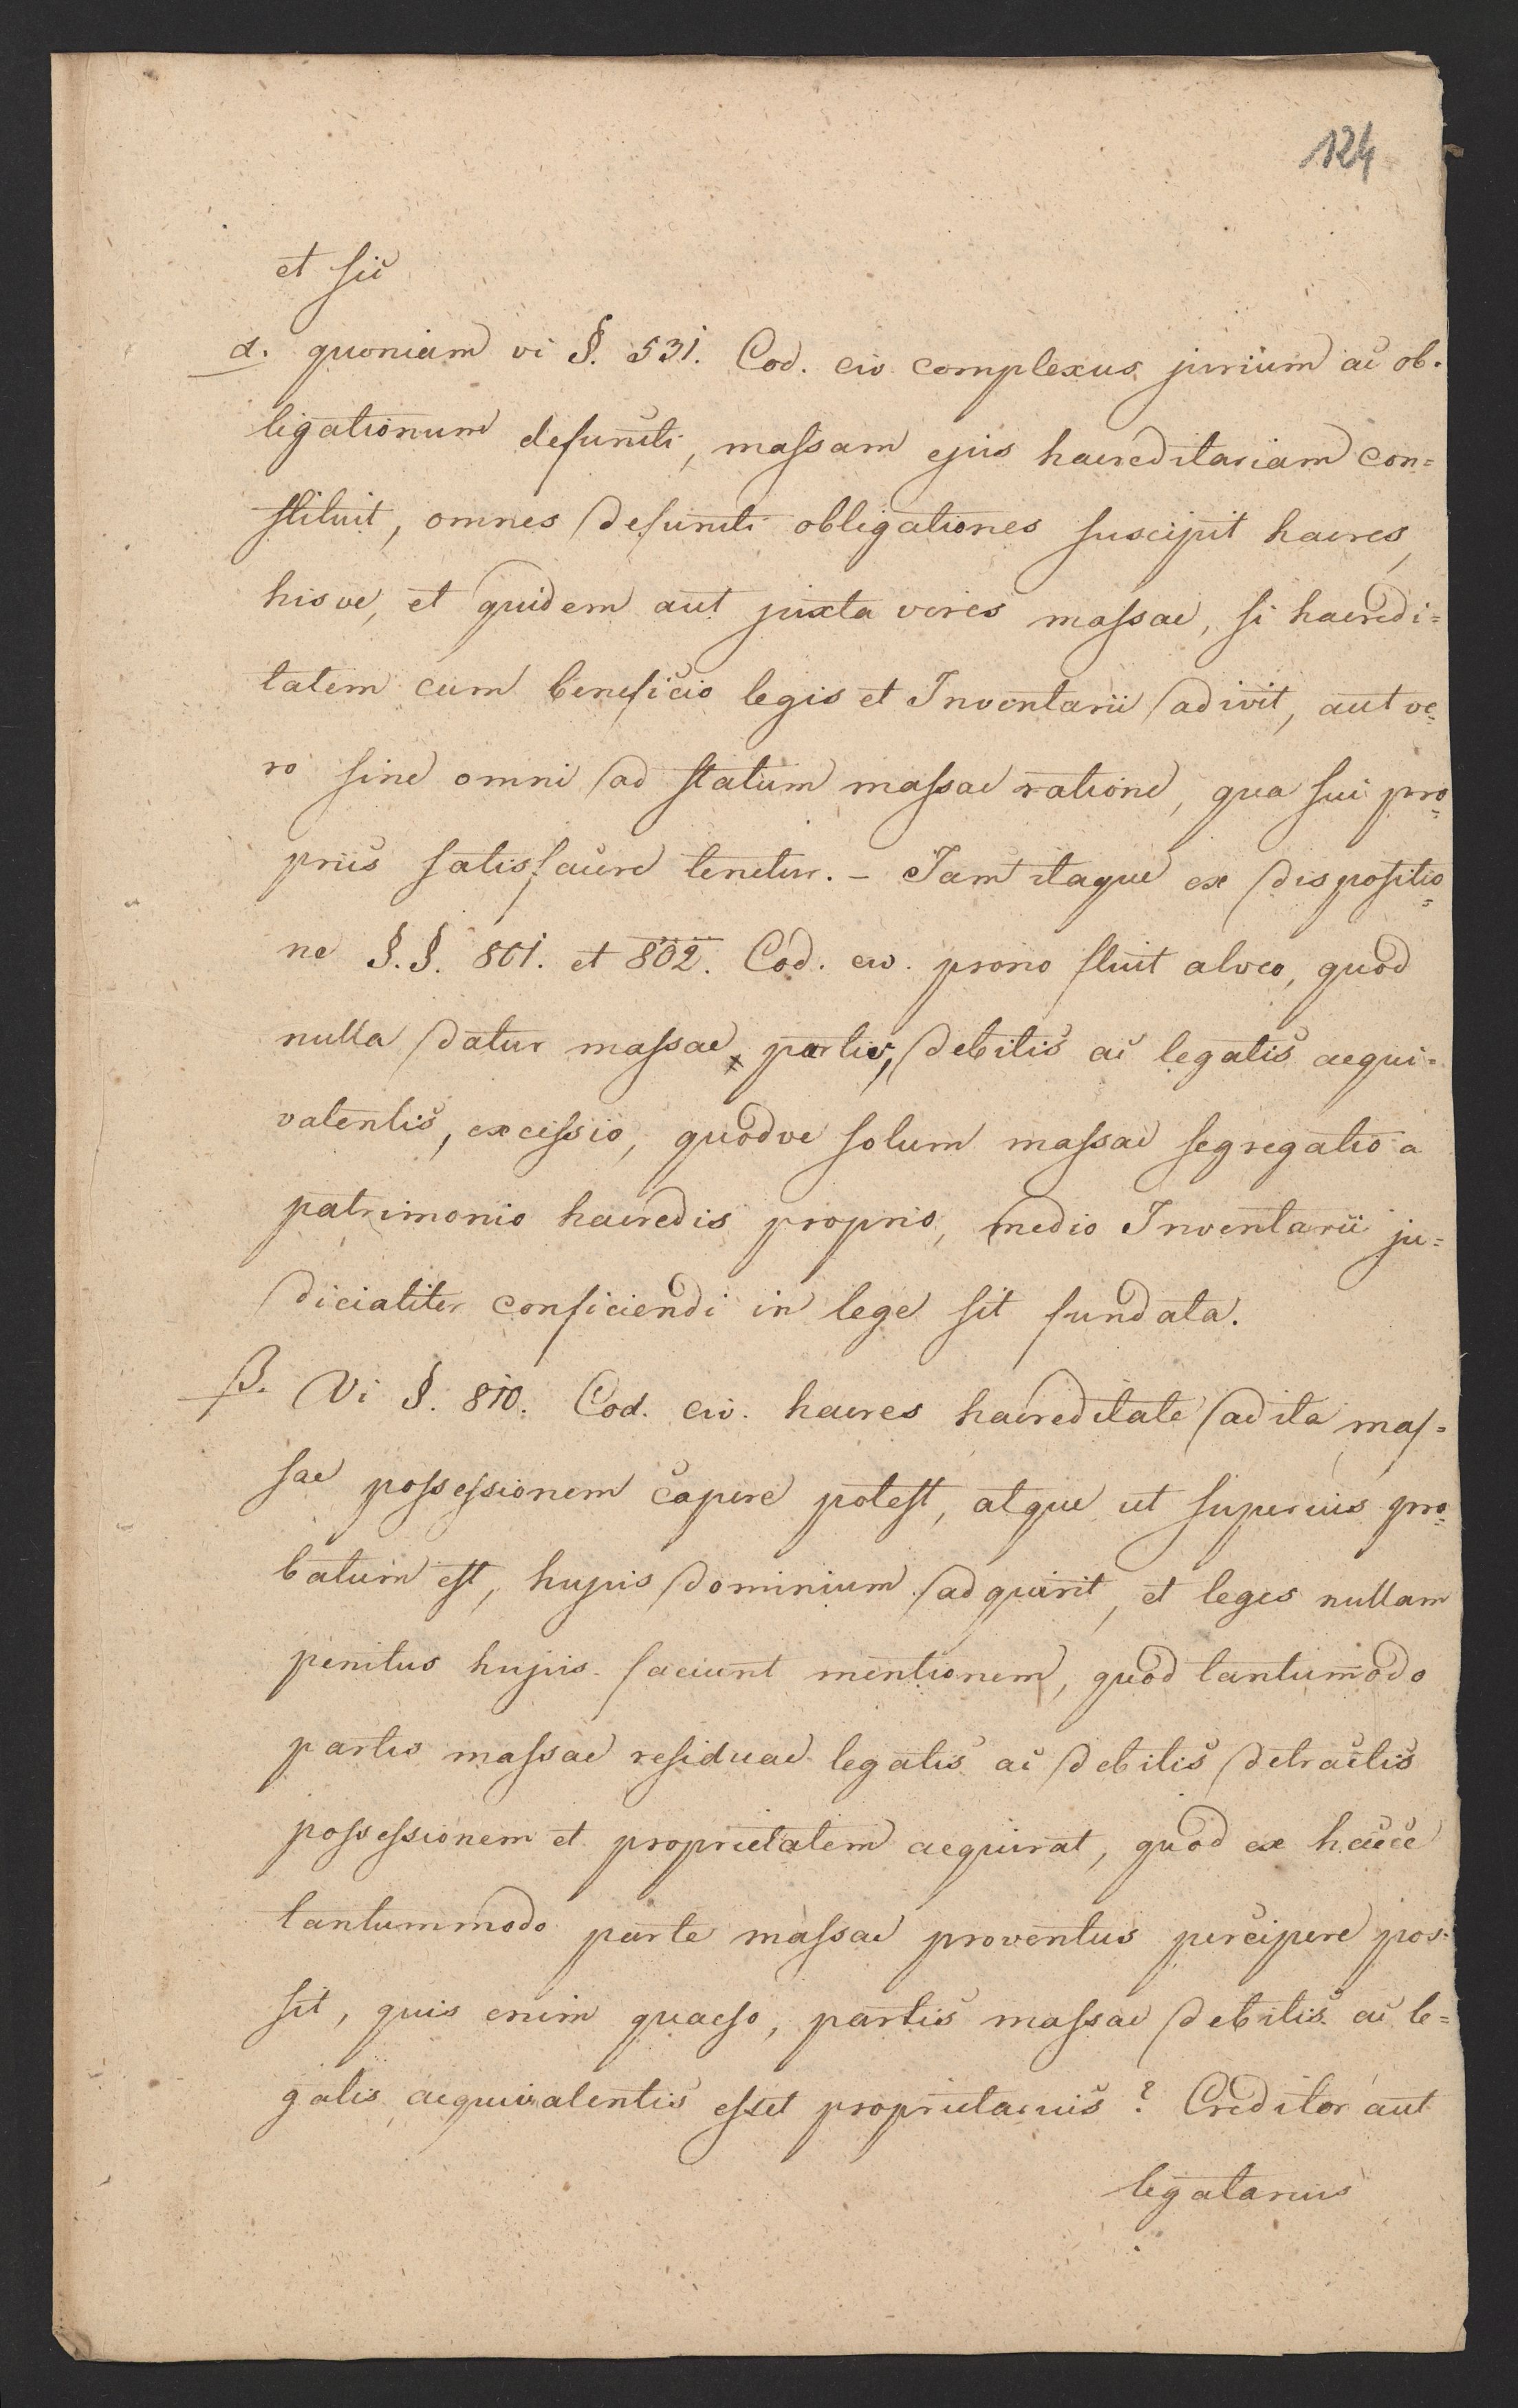 124
et sic
α. quoniam vi §. 531. Cod. civ. complexus jurium ac ob-
ligationum defuncti, massam ejus haereditariam con=
stituit, omnes defuncti obligationes suscipit haeres,
hisve, et quidem aut juxta vires massae, si haeredi=
tatem cum beneficio legis et Inventarii adivit, aut ve=
ro sine omni ad statum massae ratione, qua sui pro=
priis satisfacere tenetur. – Jam itaque ex dispositio=
ne §.§. 801. et 802. Cod. civ. prono fluit alveo, quod
nulla datur massae partis, debitis ac legatis aequi=
valentis, excissio, quodve solum massae segregatio a
patrimonio haeredis proprio, medio Inventarii ju=
dicialiter conficiendi in lege sit fundata.
β. Vi §. 810. Cod. civ. haeres haereditate adita mas=
sae possessionem capere potest, atque ut superius pro=
batum est, hujus dominium adquirit, et leges nullam
penitus hujus faciunt mentionem, quod tantumodo
partis massae residuae legatis ac debitis detractis
possessionem et proprietatem aequirat, quod ex hacce
tantummodo parte massae proventus percipere pos-
sit, quis enim quaeso, partis massae debitis ac le=
gatis aequivalentis esset proprietarius? Creditor aut
legatarius